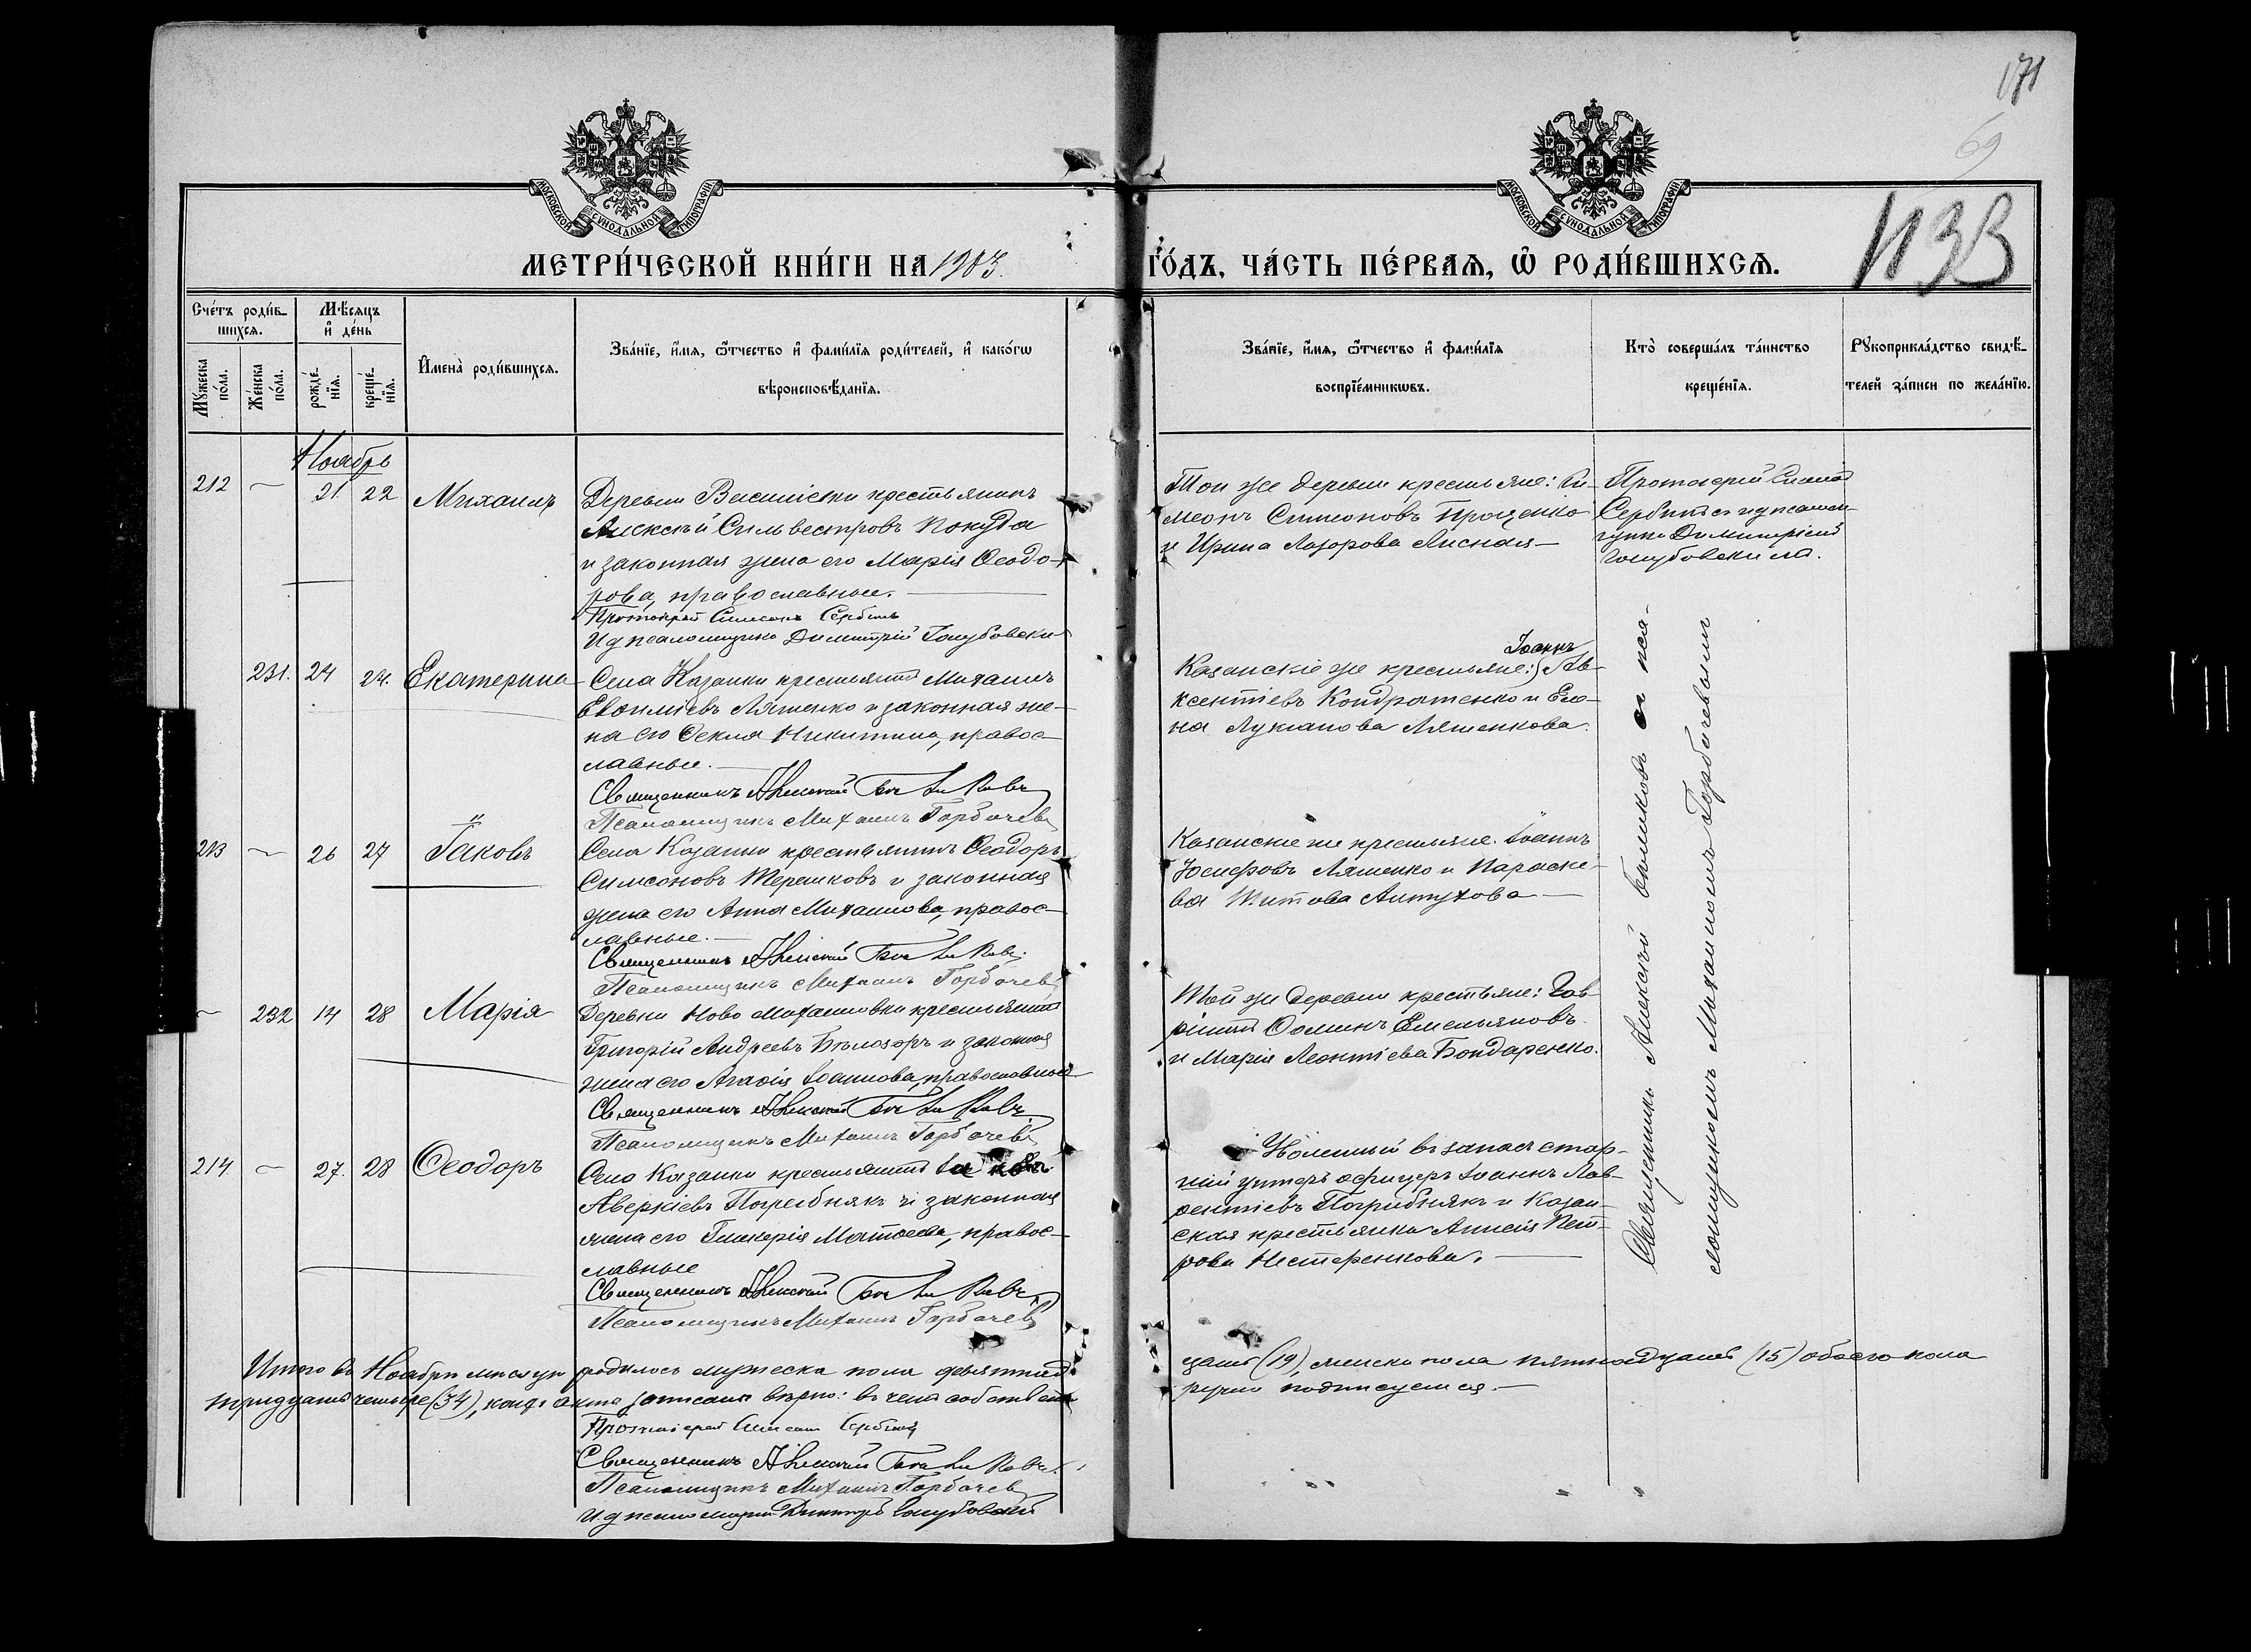 171
69
1133
МОСКОВСКОЙ СѴНОДАЛЬНОЙ ТИПОГРАФІИ
МОСКОВСКОЙ СѴНОДАЛЬНОЙ ТИПОГРАФІИ
МЕТРИ́ЧЕСКОЙ КНИ́ГИ НА 1903.
ГО́ДЪ, ЧА́СТЬ ПЕ́РВАѦ, Ѡ҆ РОДИ́ВШИХСѦ.
Сче́тъ роди́в-
шихсѧ.
Мѣ́сѧцъ
и҆ де́нь
Мꙋ́жеска
по́ла.
Же́нска
по́ла.
рожде́-
нїѧ.
креще́-
нїѧ.
И҆мена̀ роди́вшихсѧ.
Зва́нїе, и҆́мѧ, ѻ҆́тчество и҆ фами́лїѧ роди́телей, и҆ како́гѡ
вѣроисповѣ́данїѧ.
Зва́нїе, и҆́мѧ, ѻ҆́тчество и҆ фами́лїѧ
воспрїе́мникѡвъ.
Кто̀ соверша́лъ та́инство
креще́нїѧ.
Рꙋкоприкла́дство свидѣ́-
телей за́писи по жела́нїю.
Ноябрь
212 — 21. 22 Михаилъ
Деревни Висилієвки крестьянинъ
Алексѣй Сильвестровъ Покуда
и законная жена его Марія Ѳеодо-
рова, православные.
Протоіерей Симеонъ Сербинъ
И д псаломщика Димитрій Голубовскій
Той же деревни крестьяне: Си-
меонъ Симоновъ Проценко
и Ирина Лазорова Лисная —
Протоіерей Симеонъ
Сербинъ съ и д псалом-
щика Димитріемъ
Голубовскимъ.
231. 24 24. Екатерина
Села Казанки крестьянинъ Михаилъ
Евѳиміевъ Ляшенко и законная же-
на его Ѳекла Никитина, правос-
лавные. —
Священникъ Алексѣй
Псаломщикъ Михаилъ Горбачевъ
Іоаннъ
Казанскіе же крестьяне: Ав-
ксентіевъ Кондратенко и Еле-
на Лукіанова Ляшенкова.
213 — 26 27 Іаковъ
Села Казанки крестьянинъ Ѳеодоръ
Симеоновъ Терешковъ и законная
жена его Анна Михаилова, правос-
лавные. —
Священникъ Алексѣй
Псаломщикъ Михаилъ Горбачевъ
Казанскіе же крестьяне. Іоаннъ
Іосифовъ Ляшенко и Параске-
ва Титова Алтухова —
— 232 14 28 Марія
Деревни Ново Михаиловки крестьянинъ
Григорій Андреевъ Бѣлозоръ и законная
жена его Агаѳія Іоаннова, православные
Священникъ Алексѣй
Псаломщикъ Михаилъ Горбачевъ
Той же деревни крестьяне: Гав-
ріилъ Ѳоминъ Емельяновъ
и Марія Леонтіева Бондаренко.
214 — 27. 28 Ѳеодоръ
Села Казанки крестьянинъ Іаковъ
Аверкіевъ Погребнякъ и законная
жена его Гликерія Матѳеева, правос-
лавные
Священникъ Алексѣй
Псаломщикъ Михаилъ Горбачевъ
въ запасъ стар-
шій унтеръ офицеръ Іоаннъ Лав-
рентіевъ Погрибнякъ и Казан-
ская крестьянка Анисія Пет-
рова Нестеренкова. —
Священникъ Алексѣй съ пса-
ломщикомъ Михаиломъ Горбачевымъ
Итого въ Ноябрѣ мѣсяцѣ родилось мужеска пола девятнад-
цать (19), женска пола пятнадцать (15) обоего пола
тридцать четыре (34), записаны вѣрно: въ чемъ собствен-
ручно подписуемся. —
Протоіерей Симеонъ Сербинъ
Священникъ Алексѣй
Псаломщикъ Михаилъ Горбачевъ
И д псаломщика Димитрій Голубовскій